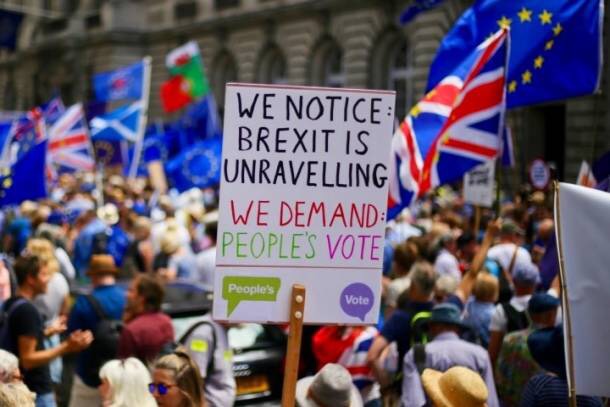 WE NOTICE:
BREXIT IS
UNRAVELLING
WE DEMAND:
PEOPLE'S VOTE
People's
Vote